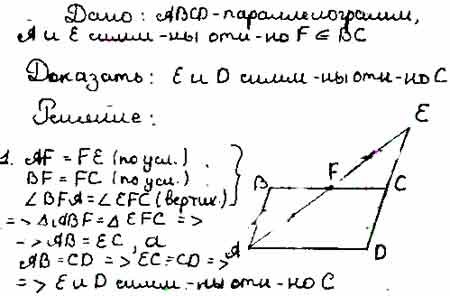 Дано: ABCD-параллелограмм,
A и E симм-ны отн-но F ∈ BC
Доказать: E и D симм-ны отн-но C
Решение:
1. AF = FE (по усл.)
BF = FC (по усл.)
∠BFA = ∠EFC (вертик.)
=> ΔABF = ΔEFC =>
-> AB = EC, а
AB = CD => EC = CD =>
=> E и D симм-ны отн-но C
E
F
B
C
A
D